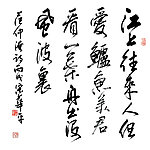 江上往来人但
愛鱸魚美君
看一葉舟出没
風波裏
范仲淹詩丙戌